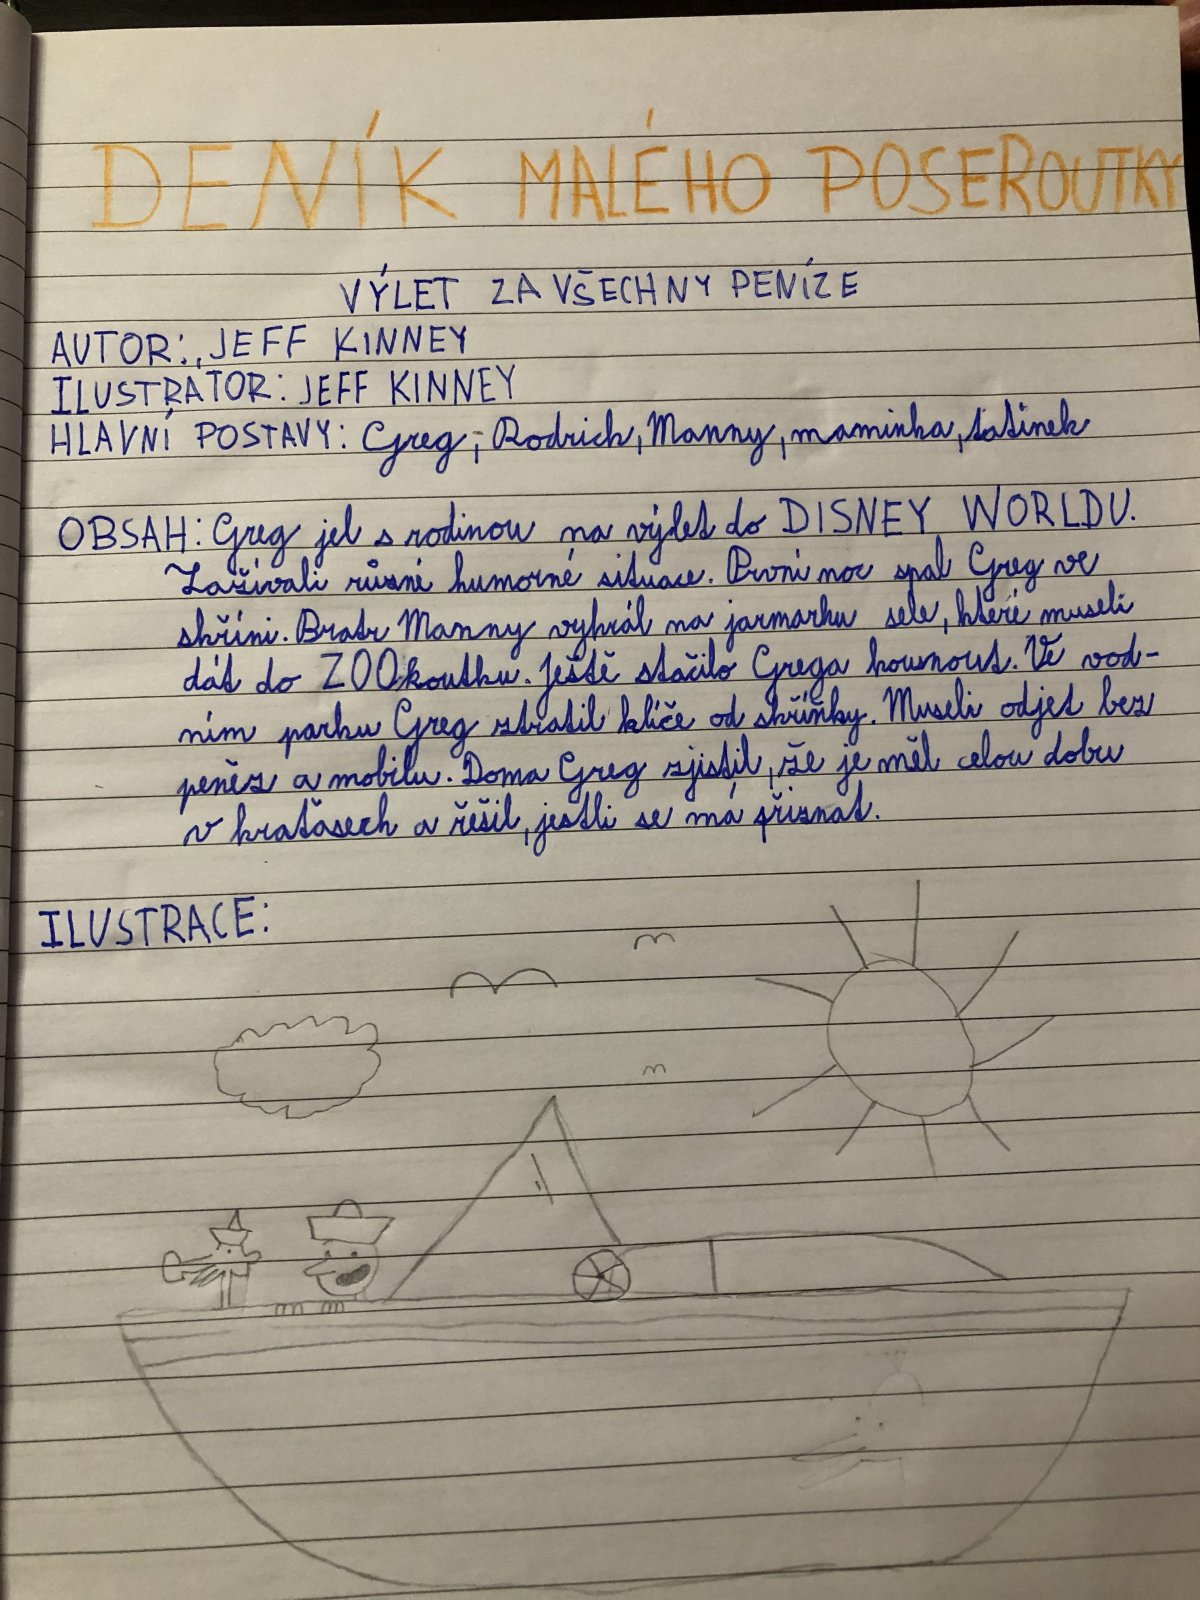 DENÍK MALÉHO POSEROUTKY
VÝLET ZA VŠECHNY PENÍZE
AUTOR: JEFF KINNEY
ILUSTRÁTOR: JEFF KINNEY
HLAVNÍ POSTAVY: Greg, Rodrich, Manny, maminka, tatínek
OBSAH: Greg jel s rodinou na výlet do DISNEY WORLDU.
Zažívali různé humorné situace. První noc spal Greg ve
skříni. Bratr Manny vyhrál na jarmarku sele, které museli
dát do ZOOkoutku. Ještě stačilo Grega kousnout. Ve vod-
ním parku Greg ztratil klíče od skříňky. Museli odjet bez
peněz a mobilu. Doma Greg zjistil, že je měl celou dobu
v kraťasech a řešil, jestli se má přiznat.
ILUSTRACE: